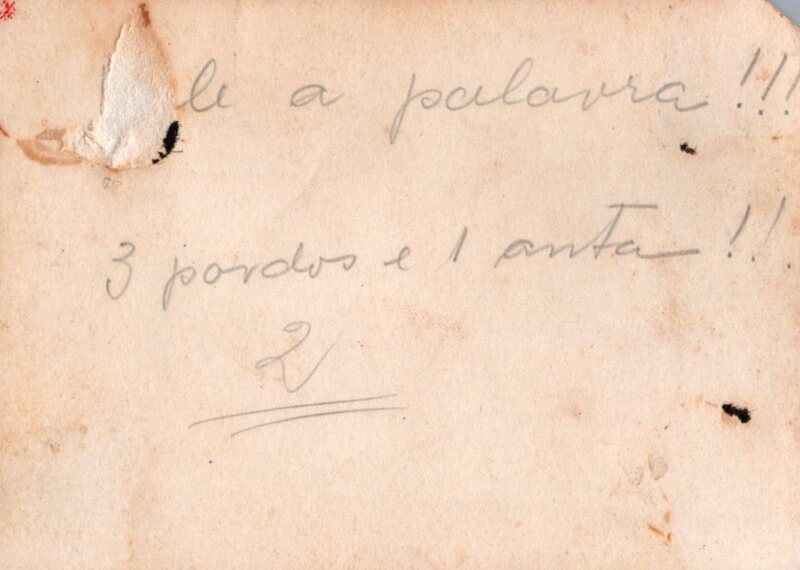 le a palavra!!!
3 pardos e 1 anta!!.
2